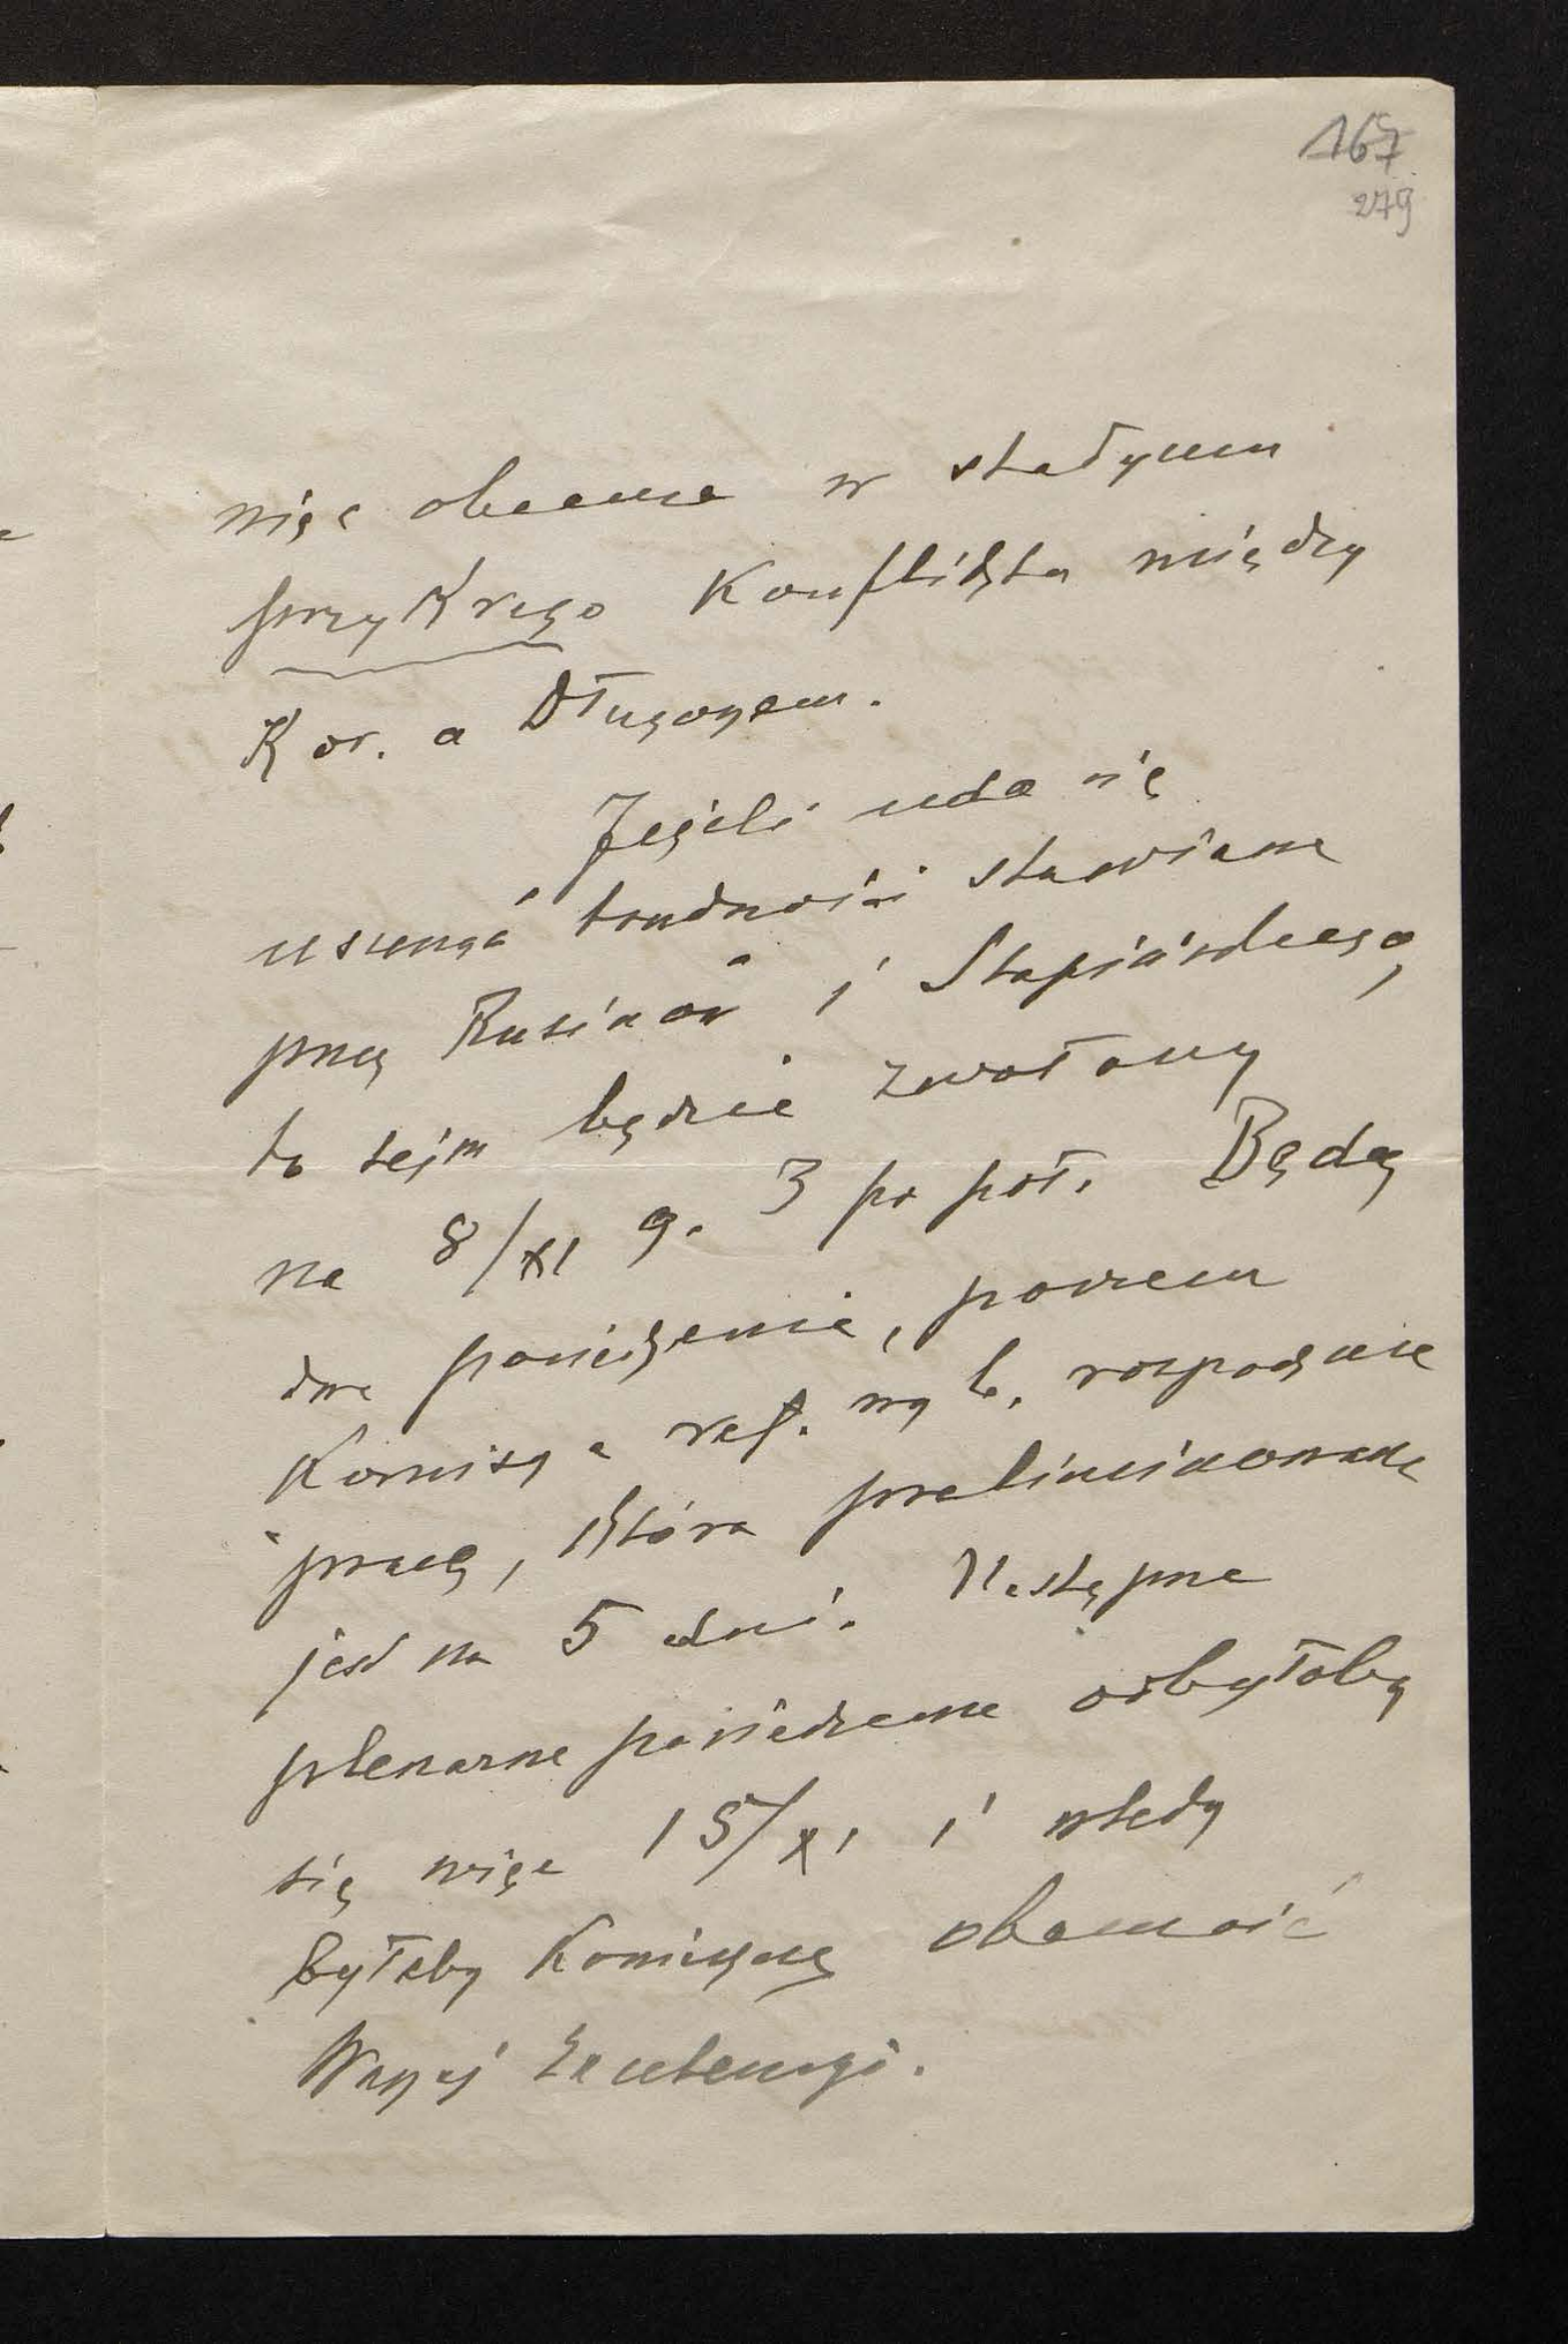 167
279
więc obecnie w stadyum
przykrego konfliktu między
Kor. a Długoszem.
Jeżeli uda się
usunąć trudności stawiane
przez Rusinów i Stapińskiego,
to sejm będzie zwołany
na 8/XI g. 3 po poł. Będą
dwa posiedzenia, poczem
Komisya ref. wyb. rozpocznie
pracę, która preliminowana
jest na 5 dni. Następne
plenarne posiedzenie odbyłoby
się więc 15/XI i wtedy
byłaby konieczną obecność
Waszej Excelencyi.